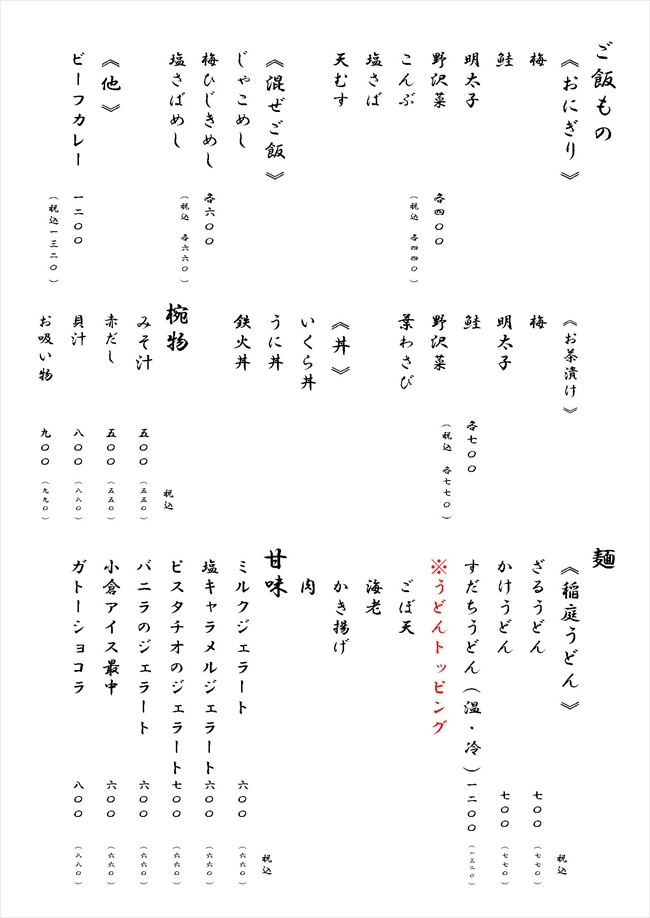 ご飯もの
《おにぎり》
梅
鮭
明太子
野沢菜
各四〇〇
こんぶ
（税込 各四四〇）
塩さば
天むす
《混ぜご飯》
じゃこめし
梅ひじきめし
各六〇〇
塩さばめし
（税込 各六六〇）
《他》
ビーフカレー
一二〇〇
（税込一三二〇）
《お茶漬け》
梅
明太子
鮭
各七〇〇
野沢菜
（税込 各七七〇）
葉わさび
《丼》
いくら丼
うに丼
鉄火丼
椀物
税込
みそ汁 五〇〇（五五〇）
赤だし 五〇〇（五五〇）
貝汁 八〇〇（八八〇）
お吸い物 九〇〇（九九〇）
麺
《稲庭うどん》
税込
ざるうどん 七〇〇（七七〇）
かけうどん 七〇〇（七七〇）
すだちうどん（温・冷）一二〇〇（一三二〇）
※うどんトッピング
ごぼ天
海老
かき揚げ
肉
甘味
税込
ミルクジェラート 六〇〇（六六〇）
塩キャラメルジェラート 六〇〇（六六〇）
ピスタチオのジェラート 七〇〇（六六〇）
バニラのジェラート 六〇〇（六六〇）
小倉アイス最中 六〇〇（六六〇）
ガトーショコラ 八〇〇（八八〇）